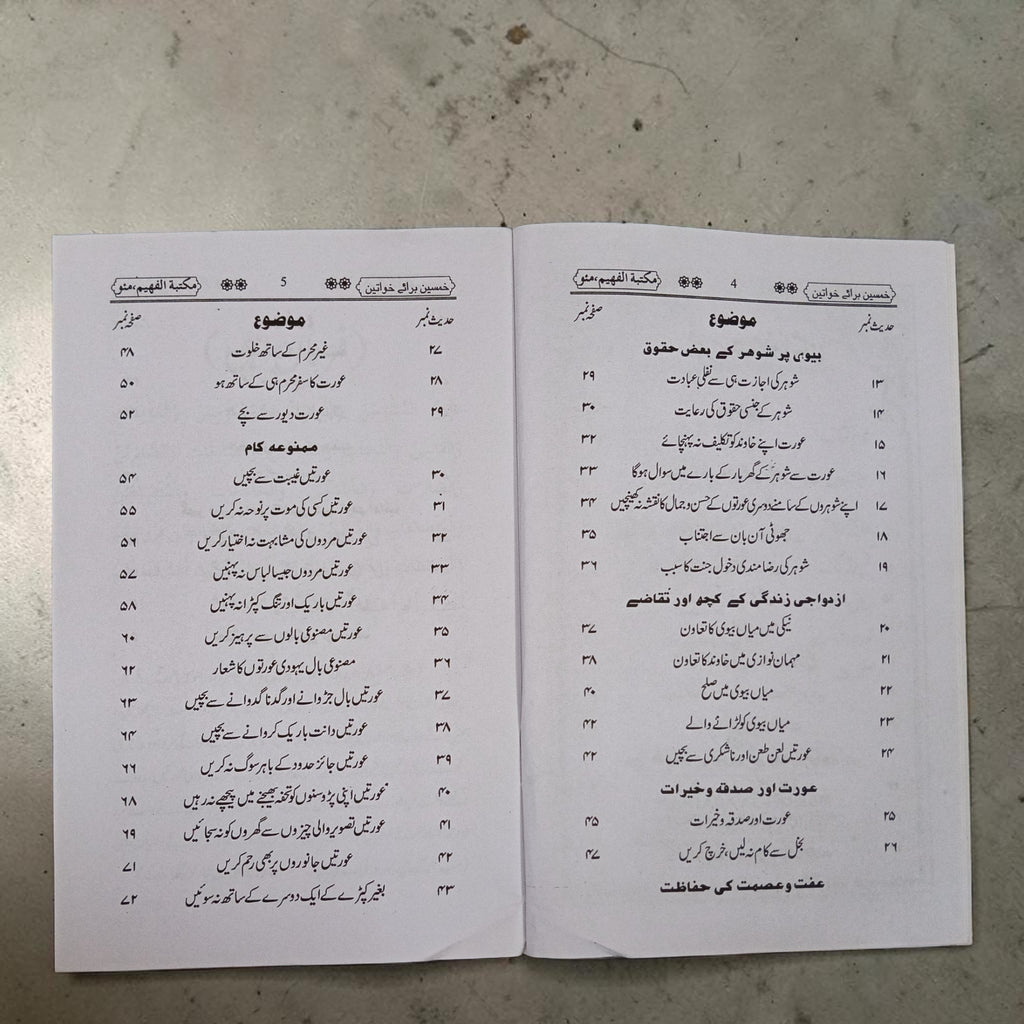 خمسین برائے خواتین 4 مکتبۃ الفہیم، مئو
حدیث نمبر موضوع صفحہ نمبر
بیوی پر شوہر کے بعض حقوق
۱۳ شوہر کی اجازت ہی سے نفلی عبادت ۲۹
۱۴ شوہر کے جنسی حقوق کی رعایت ۳۰
۱۵ عورت اپنے خاوند کو تکلیف نہ پہنچائے ۳۲
۱۶ عورت سے شوہر کے گھربار کے بارے میں سوال ہوگا ۳۳
۱۷ اپنے شوہروں کے سامنے دوسری عورتوں کے حسن و جمال کا نقشہ نہ کھینچیں ۳۴
۱۸ جھوٹی آن بان سے اجتناب ۳۵
۱۹ شوہر کی رضامندی دخول جنت کا سبب ۳۶
ازدواجی زندگی کے کچھ اور تقاضے
۲۰ نیکی میں میاں بیوی کا تعاون ۳۷
۲۱ مہمان نوازی میں خاوند کا تعاون ۳۸
۲۲ میاں بیوی میں صلح ۴۰
۲۳ میاں بیوی کو لڑائے والے ۴۲
۲۴ عورتیں لعن طعن اور ناشکری سے بچیں ۴۲
عورت اور صدقہ و خیرات
۲۵ عورت اور صدقہ و خیرات ۴۵
۲۶ بخل سے کام نہ لیں، خرچ کریں ۴۷
عفت و عصمت کی حفاظت
خمسین برائے خواتین 5 مکتبۃ الفہیم، مئو
حدیث نمبر موضوع صفحہ نمبر
۲۷ غیر محرم کے ساتھ خلوت ۴۸
۲۸ عورت کا سفر محرم ہی کے ساتھ ہو ۵۰
۲۹ عورت دیور سے بچے ۵۲
ممنوعہ کام
۳۰ عورتیں غیبت سے بچیں ۵۴
۳۱ عورتیں کسی کی موت پر نوحہ نہ کریں ۵۵
۳۲ عورتیں مردوں کی مشابہت نہ اختیار کریں ۵۶
۳۳ عورتیں مردوں جیسا لباس نہ پہنیں ۵۷
۳۴ عورتیں باریک اور تنگ کپڑا نہ پہنیں ۵۸
۳۵ عورتیں مصنوعی بالوں سے پرہیز کریں ۶۰
۳۶ مصنوعی بال یہودی عورتوں کا شعار ۶۲
۳۷ عورتیں بال جڑوانے اور گدنا گدوانے سے بچیں ۶۳
۳۸ عورتیں دانت باریک کروانے سے بچیں ۶۴
۳۹ عورتیں جائز حدود کے باہر سوگ نہ کریں ۶۶
۴۰ عورتیں اپنی پڑوسنوں کو تحفہ بھیجنے میں پیچھے نہ رہیں ۶۸
۴۱ عورتیں تصویر والی چیزوں سے گھروں کو نہ سجائیں ۶۹
۴۲ عورتیں جانوروں پر بھی رحم کریں ۷۱
۴۳ بغیر کپڑے کے ایک دوسرے کے ساتھ نہ سوئیں ۷۲